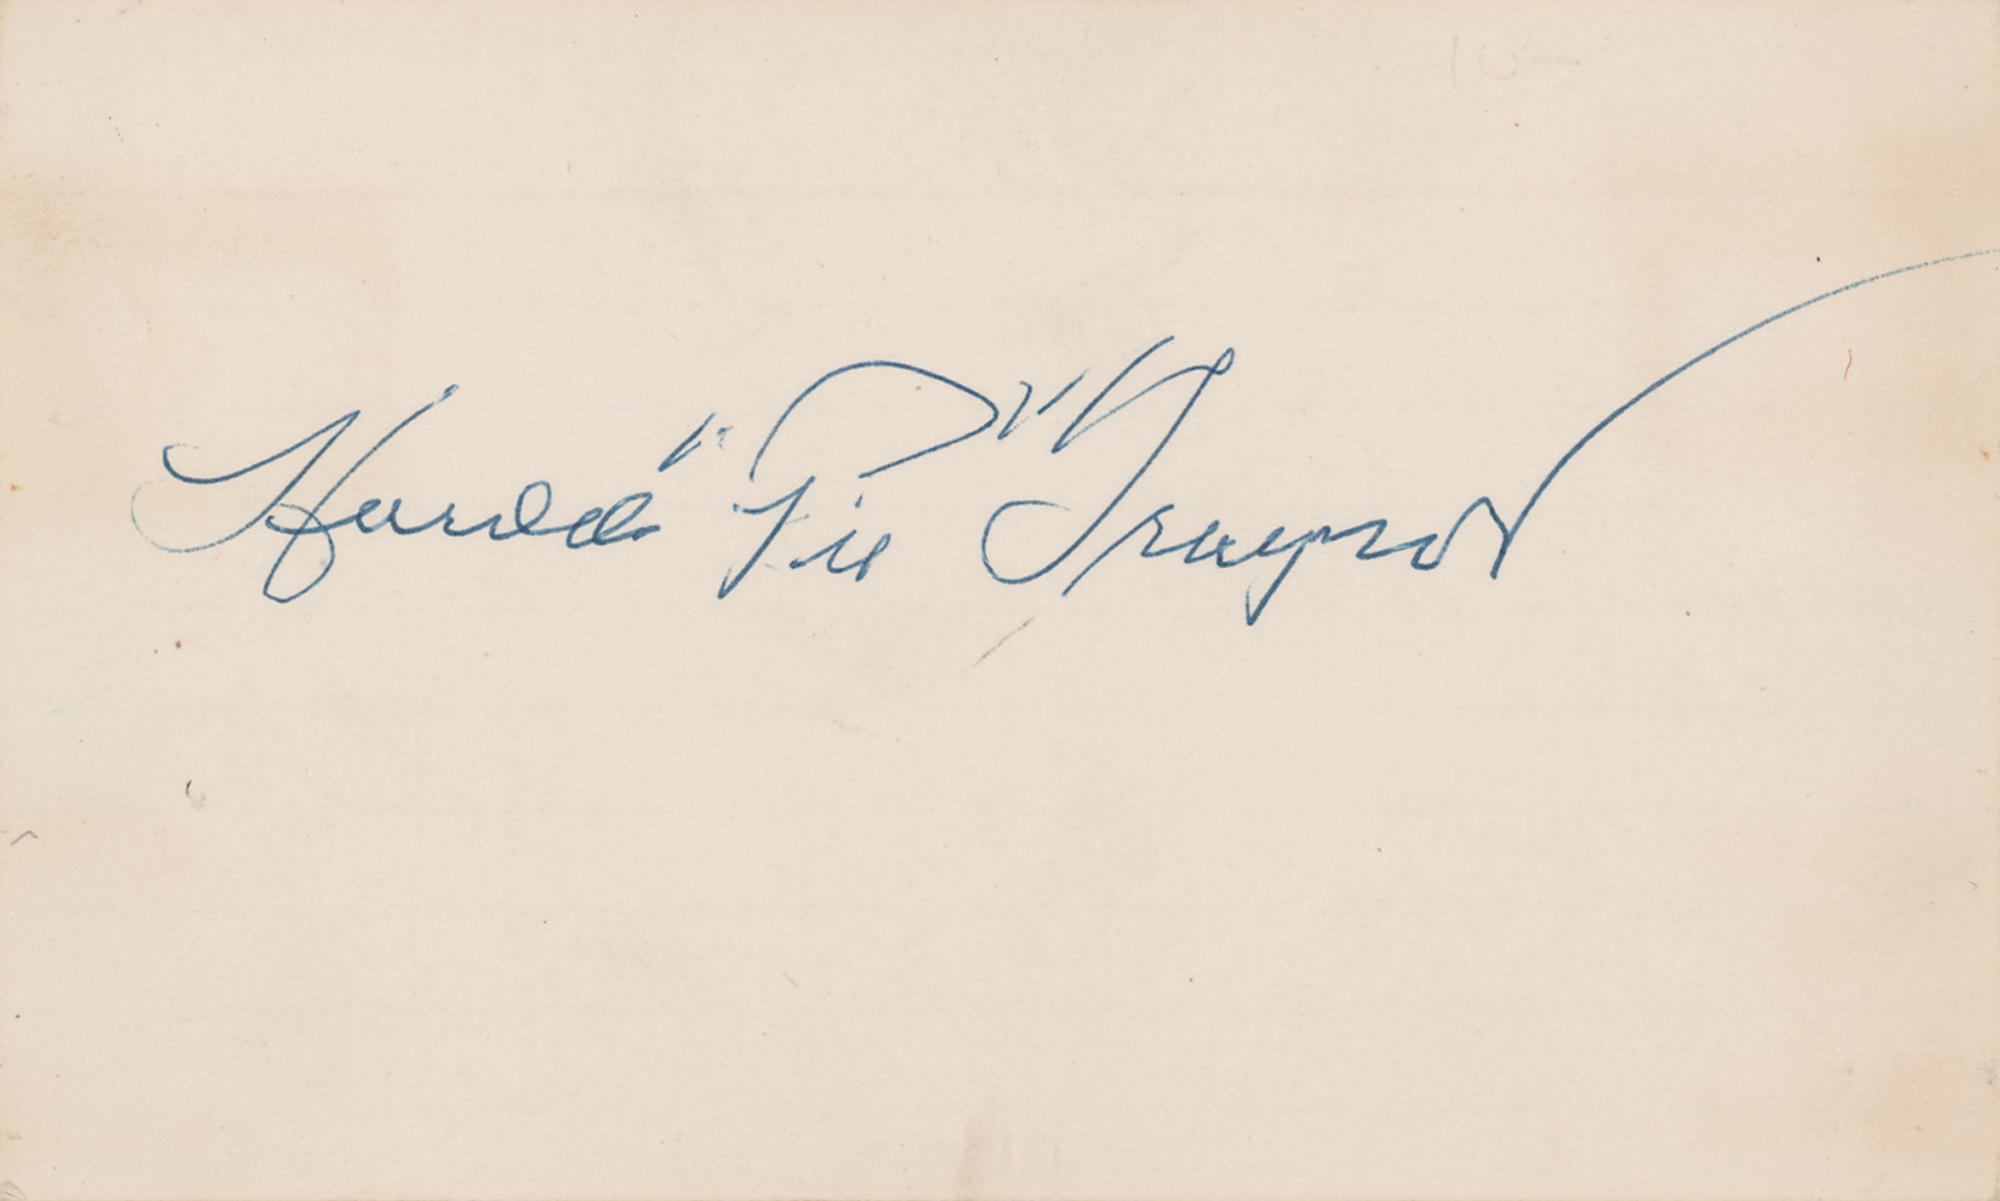 Harold "Pie" Traynor